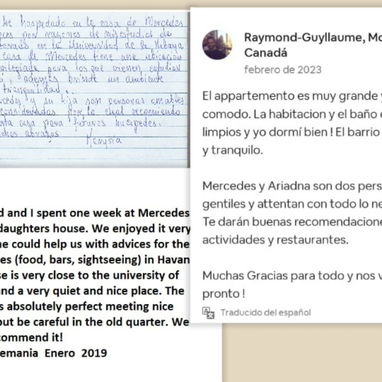 he hospedado en la casa de Mercedes
por razones de
en la Universidad de la Habana
casa de Mercedes tiene una ubicación
para los que
y además brinda un ambiente
tranquilidad
y su hija son personas amables
consideradas por lo cual recomiendo
esta casa para futuros huéspedes.
abrazos
d and I spent one week at Mercedes
daughters house. We enjoyed it very
e could help us with advices for the
es (food, bars, sightseeing) in Havan
se is very close to the university of
nd a very quiet and nice place. The
s absolutely perfect meeting nice
but be careful in the old quarter. We
commend it!
emania Enero 2019
Raymond-Guyllaume, Mo
Canadá
febrero de 2023
El appartemento es muy grande y
comodo. La habitacion y el baño e
limpios y yo dormi bien ! El barrio
y tranquilo.
Mercedes y Ariadna son dos pers
gentiles y attentan con todo lo ne
Te darán buenas recomendacione
actividades y restaurantes.
Muchas Gracias para todo y nos v
pronto !
Traducido del español